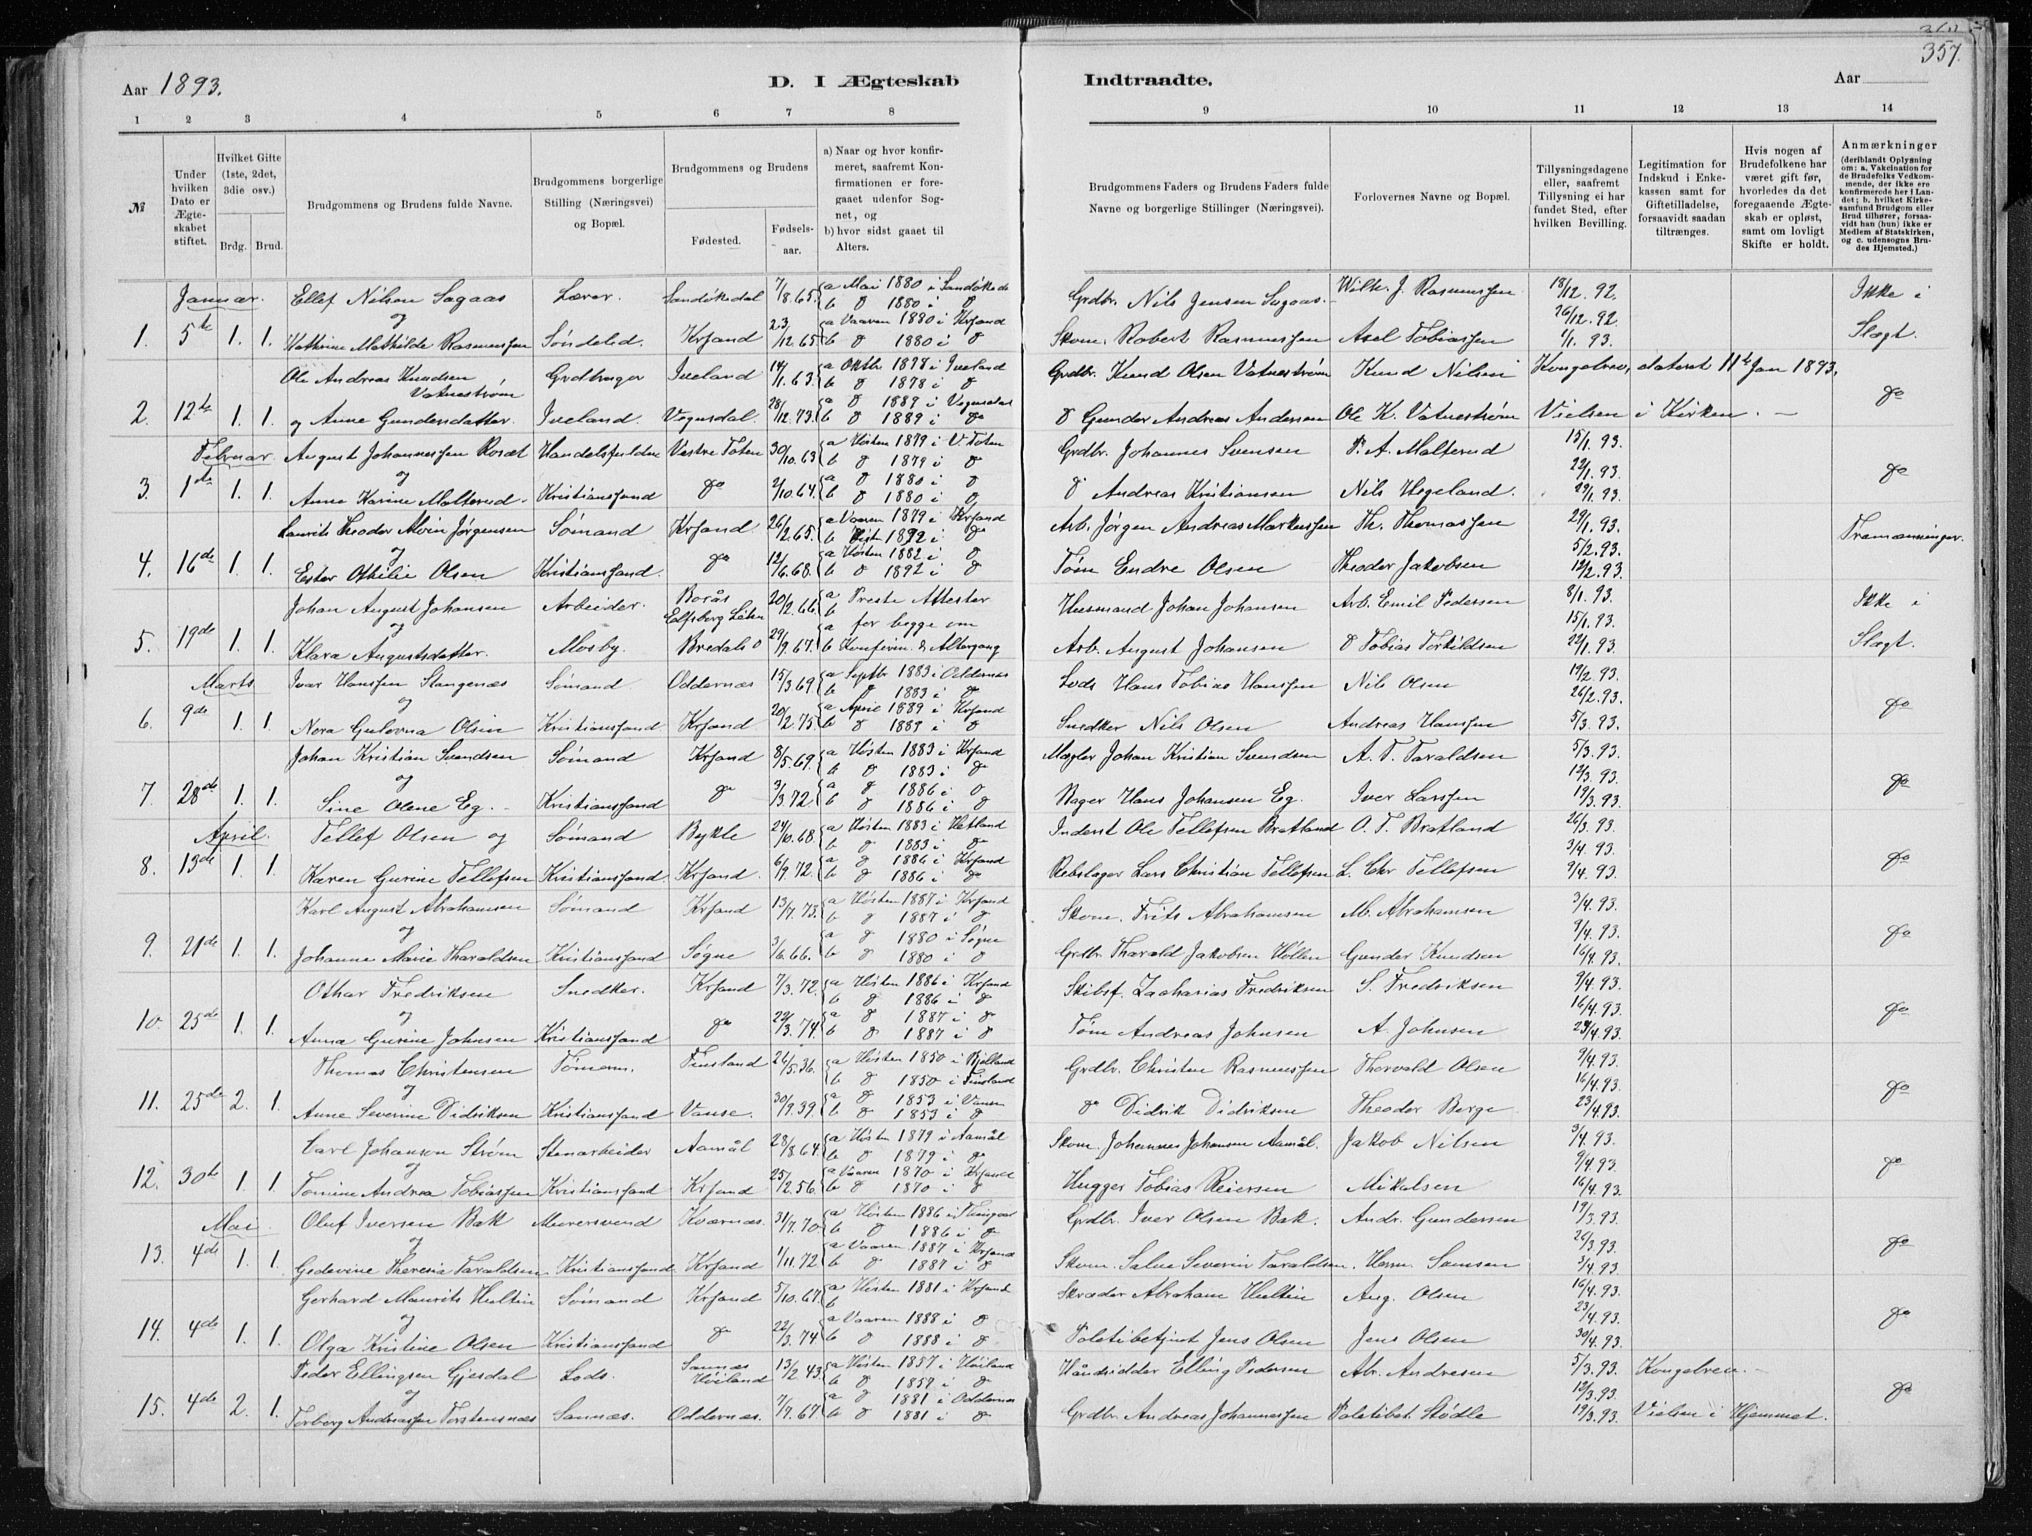 357.
Aar 1893.
D. I Ægteskab
Indtraadte.
Aar
1 2 3 4 5 6 7 8
9 10 11 12 13 14
№
Under hvilken Dato er Ægteskabet stiftet.
Hvilket Gifte (1ste, 2det, 3die osv.)
Brdg. Brud.
Brudgommens og Brudens fulde Navne.
Brudgommens borgerlige Stilling (Næringsvei) og Bopæl.
Brudgommens og Brudens
Fødested. Fødsels-aar.
a) Naar og hvor konfirmeret, saafremt Konfirmationen er foregaaet udenfor Sognet, og
b) hvor sidst gaaet til Alters.
Brudgommens Faders og Brudens Faders fulde Navne og borgerlige Stillinger (Næringsvei).
Forlovernes Navne og Bopæl.
Tillysningsdagene eller, saafremt Tillysning ei har fundet Sted, efter hvilken Bevilling.
Legitimation for Indskud i Enkekassen samt for Giftetilladelse, forsaavidt saadan tiltrænges.
Hvis nogen af Brudefolkene har været gift før, hvorledes da det foregaaende Ægteskab er opløst, samt om lovligt Skifte er holdt.
Anmærkninger (deriblandt Oplysning om: a, Vakcination for de Brudefolks Vedkommende, der ikke ere konfirmerede her i Landet; b, hvilket Kirkesamfund Brudgom eller Brud tilhører, forsaavidt han (hun) ikke er Medlem af Statskirken, og c. udensogns Brudes Hjemsted.)
Januar. Ellef Nilsen Sagaas Lærer. Sandøkedal 7/8.65. a Mai 1880 i Sandøkedal b d 1880 i d Grdbr. Nils Jensen Sagaas. Wilh. J. Rasmussen 18/12.92. Ikke i
og 26/12.92.
1. 5te 1. 1. Kathrine Mathilde Rasmussen Søndeled. Krsand 23/12.65 a Vaaren 1880 i Krsand b d 1880 i d Skom. Robert Rasmussen Axel Tobiassen 1/1.93. Slægt.
Ole Andreas Knudsen Vatnestrøm Grdbruger Iveland 14/1.63. a Oktbr 1878 i Iveland b d 1878 i d Grdbr. Knud Olsen Vatnestrøm Knud Nilsen Kongebrev, dateret 11te Jan 1893.
2. 12te 1. 1. og Anne Gundersdatter. Iveland. Vegusdal. 28/12.73. a d 1889 i Vegusdal b d 1889 i do d Gunder Andreas Andersen Ole K. Vatnestrøm Vielsen i Kirken. — do
Februar. August Johannessen Roset Handelsfuldm Vestre Toten 30/10.63 a Høsten 1879 i V. Toten b d 1879 i do Grdbr. Johannes Svensen P. A. Malterud 15/1.93.
og 22/1.93. do
3. 1ste 1. 1. Anne Karine Malterud. Kristianssand do 2/10.64. a d 1880 i d b d 1880 i d d Andreas Kristiansen Nils Hegeland. 29/1.93.
Laurits Theodor Alvin Jørgensen Sømand Krsand. 26/2.65. a Vaaren 1879 i Krsand b Høst 1892 i do Arb. Jørgen Andreas Markussen Th. Thomassen 29/1.93. Tremænninger.
og 5/2.93.
4. 16de 1. 1. Ester Othilie Olsen Kristianssand. do 12/6.68. a Høsten 1882 i d b d 1892 i d Tøm Endre Olsen Theodor Jakobsen 12/2.93.
Johan August Johansen Arbeider. Borås Elfsborg Län 20/2.66. a Preste Attester Husmand Johan Johansen Arb. Emil Pedersen 8/1.93. Ikke i
og for begge om 15/1.93.
5. 19de 1. 1. Klara Augustsdatter. Mosby. 29/9.67. b Konfirm. & Altergang Arb. August Johansen d Tobias Torkildsen 22/1.93. Slægt.
Marts Ivar Hanssen Stangenæs Sømand Oddernæs 15/3.69. a Septbr 1883 i Oddernæs b d 1883 i d Lods Hans Tobias Hanssen Nils Olsen 19/2.93.
og 26/2.93. do
6. 9de 1. 1. Nora Gulovna Olsen Kristianssand Krsand 20/2.75. a April 1889 i Krsand b d 1889 i d Snedker Nils Olsen Andreas Hanssen 5/3.93.
Johan Kristian Svendsen Sømand Krsand 8/5.69. a Høsten 1883 i Krsand b d 1883 i do Mægler Johan Kristian Svendsen A. T. Taraldsen 5/3.93.
og 12/3.93. do
7. 28de 1. 1. Sine Olene Eg. Kristianssand do 3/3.72 a d 1886 i d b d 1886 i d Bager Hans Johansen Eg. Iver Larssen 19/3.93.
April. Tellef Olsen og Sømand Bykle 24/10.68. a Høsten 1883 i Hetland b d 1883 i do Inderst Ole Tellefsen Bratland O. T. Bratland 26/3.93.
3/4.93. do
8. 13de 1. 1. Karen Gurine Tellefsen Kristianssand. Krsand. 6/9.72. a d 1886 i Krsand b d 1886 i do Rebslager Lars Christian Tellefsen L. Chr Tellefsen 9/4.93.
Karl August Abrahamsen Sømand Krsand 13/7.73. a Høsten 1887 i Krsand b d 1887 i d Skom. Frits Abrahamsen M. Abrahamsen 3/4.93.
og 9/4.93. do
9. 21de 1. 1. Johanne Marie Tharaldsen Kristianssand Søgne 3/6.66. a d 1880 i Søgne b d 1880 i d Grdbr. Tharald Jakobsen Høllen Gunder Knudsen 16/4.93.
Othar Fredriksen Snedker. Krsand 7/3.72. a Høsten 1886 i Krsand b d 1886 i d Skibsf. Zacharias Fredriksen S. Fredriksen 9/4.93.
og 16/4.93. do
10. 25de 1. 1. Anna Gurine Johnsen Kristianssand do 22/3.74. a d 1887 i d b d 1887 i d Tøm Andreas Johnsen A. Johnsen 23/4.93.
Thomas Christensen Tømerm. Finsland 26/5.36. a Høsten 1850 i Bjelland b d 1850 i Finsland Grdbr. Christen Rasmussen Thorvald Olsen 9/4.93.
og 16/4.93. do
11. 25de 2. 1. Anne Severine Didriksen Kristianssand Vanse. 30/9.39. a d 1853 i Vansen b d 1853 i d do Didrik Didriksen Theodor Berge 23/4.93.
Carl Johansen Strøm Stenarbeider Aamål 28/8.64. a Høsten 1879 i Aamål b d 1879 i do Skom. Johannes Johansen Aamål. Jakob Nilsen 3/4.93.
og 9/4.93. do
12. 30te 1. 1. Tomine Andrea Tobiassen Kristianssand Krsand 25/12.56. a Vaaren 1870 i Krsand b d 1870 i d Hugger Tobias Reiersen Mikalsen 16/4.93.
Mai Oluf Iversen Bak Murersvend Kværnæs. 31/7.70 a Høsten 1886 i b d 1886 i do Grdbr. Iver Olsen Bak. Andr. Gundersen 19/3.93.
og 26/3.93. do
13. 4de 1. 1. Gedevine Theresia Taraldsen. Kristianssand Krsand 1/11.72 a Vaaren 1887 i Krsand b d 1887 i d Skom. Salve Severin Taraldsen. Herm. Samsen 3/4.93.
Gerhard Maurits Hultin Sømand Krsand 5/10.67. a Høsten 1881 i Krsand b Skræder Abraham Hultin Aug. Olsen 16/4.93.
og 23/4.93. do
14. 4de 1. 1. Olga Kristine Olsen Kristianssand do 22/3.74 a Vaaren 1888 i d b d 1888 i d Politibetjent Jens Olsen Jens Olsen 30/4.93.
Peder Ellingsen Gjesdal Lods. Sannæs Høiland 13/2.43. a Høsten 1857 i Høiland b d 1859 i d Elling Pedersen Abr. Andresen 5/3.93. Kongebrev. —
og 12/3.93. do
15. 4de 2. 1. Torborg Andreassen Torstensnæs Sannæs. Oddernæs. 7/7.67 a d 1881 i Oddernæs b d 1881 i d Grdbr. Andreas Johannessen Politibet. Stødle 19/3.93. Vielsen i Hjemmet.